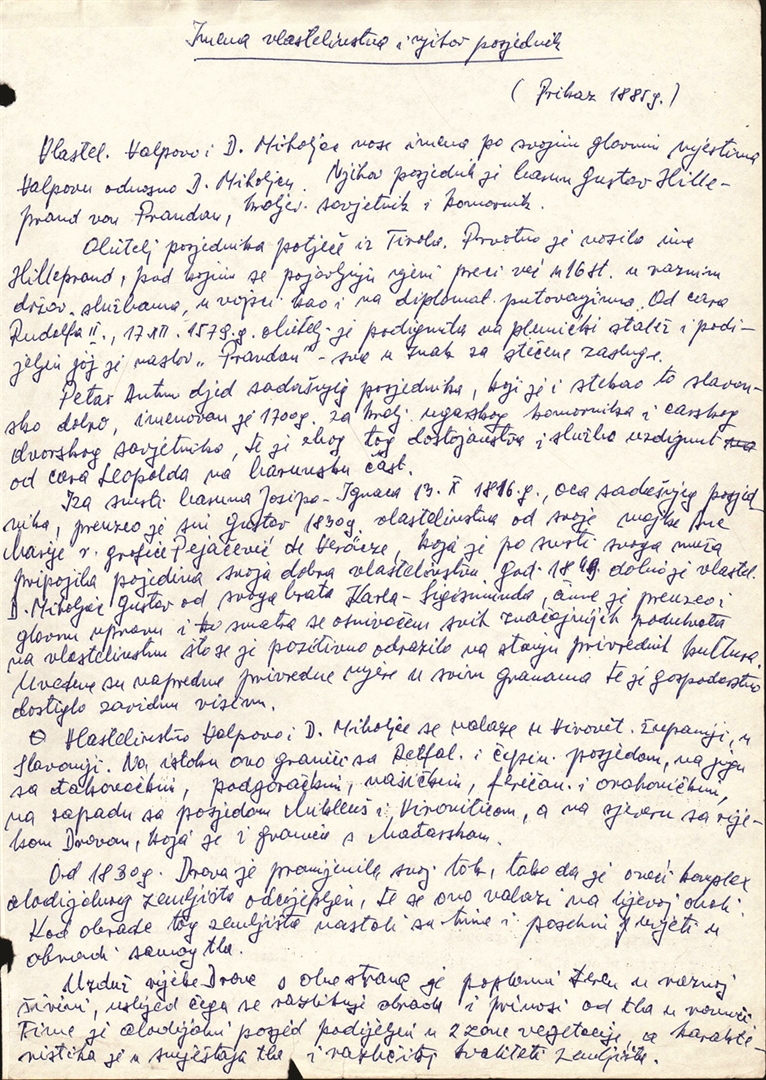 Imena vlastelinstva i njihov posjednik
(Prikaz 1885g.)
Vlastel. Valpovo i D. Miholjac nose imena po svojim glavnim mjestima
Valpovu odnosno D. Miholjcu. Njihov posjednik je barun Gustav Hille-
prand von Prandau, kraljev. savjetnik i komornik.
Obitelj posjednika potječe iz Tirola. Prvotno je nosila ime
Hilleprand, pod kojim se pojavljuju njeni preci već u 16 st. u raznim
držav. službama, u vojsci kao i na diplomat. putovanjima. Od cara
Rudolfa II., 17.XII. 1579.g. obitelj je podignuta na plemićki stalež i podi-
jeljen joj je naslov „Prandau" - sve u znak za stečene zasluge.
Petar Antun djed sadašnjeg posjednika, koji je i stekao to slavon-
sko dobro, imenovan je 1700g. za kralj. ugarskog komornika i carskog
dvorskog savjetnika, te je zbog tog dostojanstva i službe uzdignut
od cara Leopolda na barunsku čast.
Iza smrti baruna Josipa-Ignaca 13. X 1816.g., oca sadašnjeg posjed-
nika, preuzeo je sin Gustav 1830g. vlastelinstva od svoje majke Ane
Marije r. grofice Pejačević de Veröcze, koja je po smrti svoga muža
pripojila pojedina svoja dobra vlastelinstvu. God. 18 dobio je vlastel.
D. Miholjac Gustav od svoga brata Karla-Sigismunda, čime je preuzeo i
glavnu upravu i smatra se osnivačem svih značajnijih produkata
na vlastelinstvu što se je pozitivno odrazilo na stanju privrednih kultura.
Uvedene su napredne privredne mjere u svim granama te je gospodarstvo
dostiglo zavidnu visinu.
Vlastelinstvo Valpovo i D. Miholjac se nalaze u Virovit. županiji, u
Slavoniji. Na istoku ovo graniči sa Retfal. i čepin. posjedom, na jugu
sa đakovačkim, podgoračkim, našičkim, feričan. i orahovičkim,
na zapadu sa posjedom Mikleuš i Viroviticom, a na sjeveru sa rije-
kom Dravom, koja je i granica s Mađarskom.
Od 1830g. Drava je promijenila svoj tok, tako da je oveći kompleks
alodijalnog zemljišta odcijepljen, te se ovo nalazi na lijevoj obali.
Kod obrade tog zemljišta nastali su time i posebni uvjeti u
obradi samog tla.
Uzduž rijeke Drave s obe strane je poplavni teren u raznoj
širini, uslijed čega se razlikuje obrada i prinosi od tla u ravnici
Time je alodijalni posjed podijeljen u 2 zone vegetacije, a karakte-
ristika je u smještaju tla i različitoj kvaliteti zemljišta.